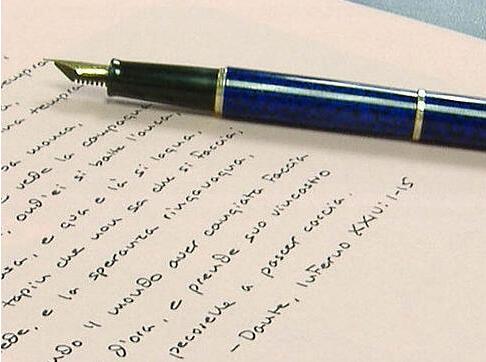 tempra
manca,
vede la campagna
ond'ei si batte l'anca,
e qua e là si lagna,
tapin che non sa che si faccia;
ede, e la speranza ringavagna,
ndo 'l mondo aver cangiata faccia
d'ora, e prende suo vincastro
pecorelle a pascer caccia.
- Dante, Inferno XXIV: 1-15